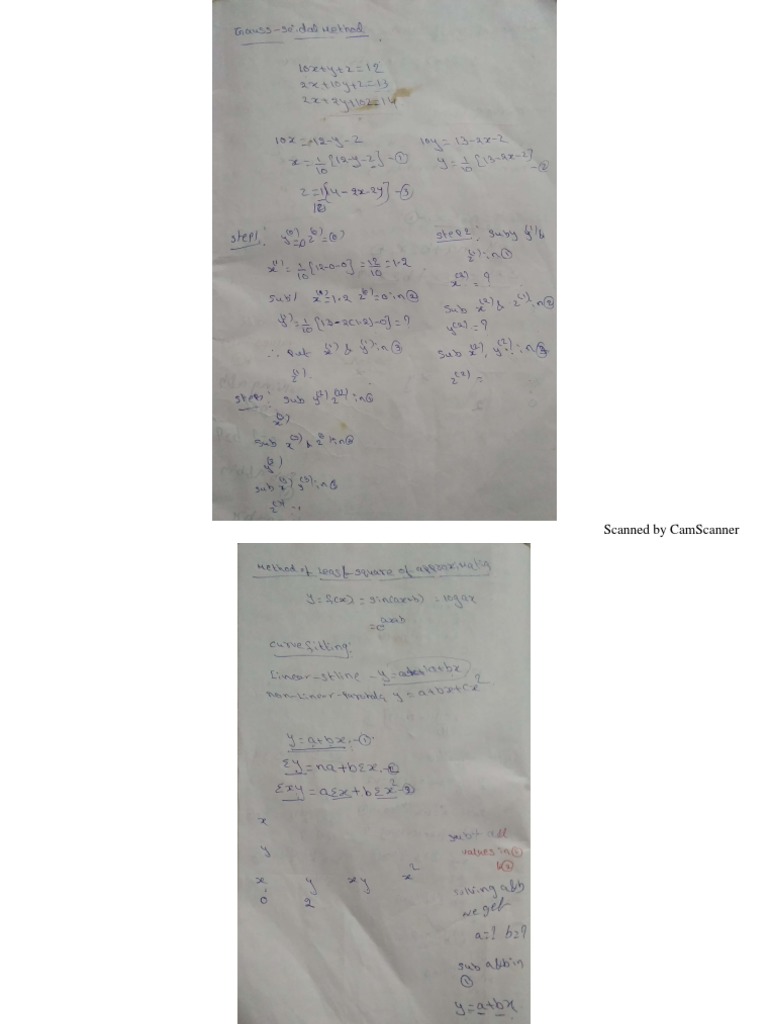 Gauss-Seidal Method
10x+y+z=12
2x+10y+z=13
2x+2y+10z=14
10x=12-y-z
10y=13-2x-z
x=1/10[12-y-z]-①
y=1/10[13-2x-z]-②
z=1/10[14-2x-2y]-③
Step1: y⁽⁰⁾=0 z⁽⁰⁾=0
x⁽¹⁾=1/10[12-0-0]=12/10=1.2
Sub x⁽¹⁾=1.2 z⁽⁰⁾=0 in ②
y⁽¹⁾=1/10[13-2(1.2)-0]=?
∴ Put x⁽¹⁾ & y⁽¹⁾ in ③
z⁽¹⁾.
Step2: Sub y⁽¹⁾ &
z⁽¹⁾ in ①
x⁽²⁾=?
Sub x⁽²⁾ & z⁽¹⁾ in ②
y⁽²⁾=?
Sub x⁽²⁾, y⁽²⁾ in ③
z⁽²⁾=
Step3: Sub y⁽²⁾ z⁽²⁾ in ①
x⁽³⁾
Sub x⁽³⁾ & z⁽²⁾ in ②
y⁽³⁾
Sub x⁽³⁾ y⁽³⁾ in ③
z⁽³⁾
Scanned by CamScanner
Method of Least Square of
y=f(x)=sin(ax+b)=logax
=e^ax+b
Curve fitting:
Linear-st line - y=a+bx
non-Linear- y=a+bx+cx²
y=a+bx-①.
Σy=na+bΣx-②
Σxy=aΣx+bΣx²-③
x
y
x y xy x²
0 2
subt all
values in ①
& ②
solving a&b
we get
a=? b=?
sub a&b in
①
y=a+bx